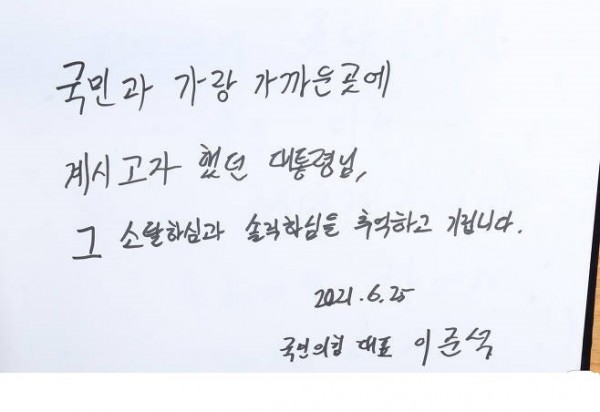 국민과 가장 가까운곳에
계시고자 했던 대통령님,
그 소탈하심과 솔직하심을 추억하고 기립니다.
2021.6.25
국민의힘 대표 이준석